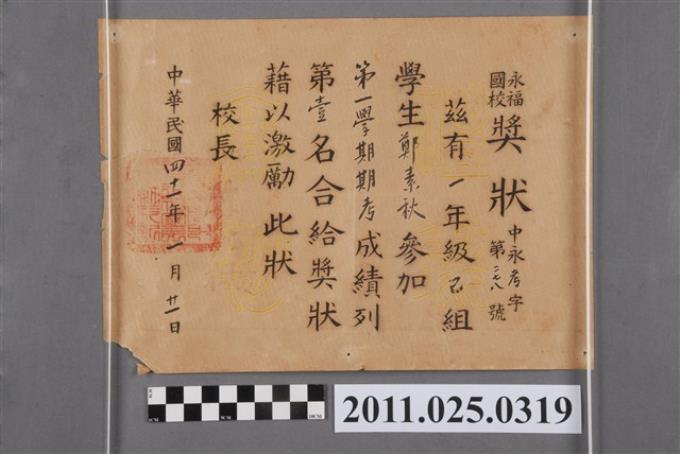 永福
國校
獎狀
中永考字
第二七八號
茲有一年級己組
學生鄭素秋參加
第一學期期考成績列
第壹名合給獎狀
藉以激勵此狀
校長
中華民國四十一年一月廿一日
2011.025.0319